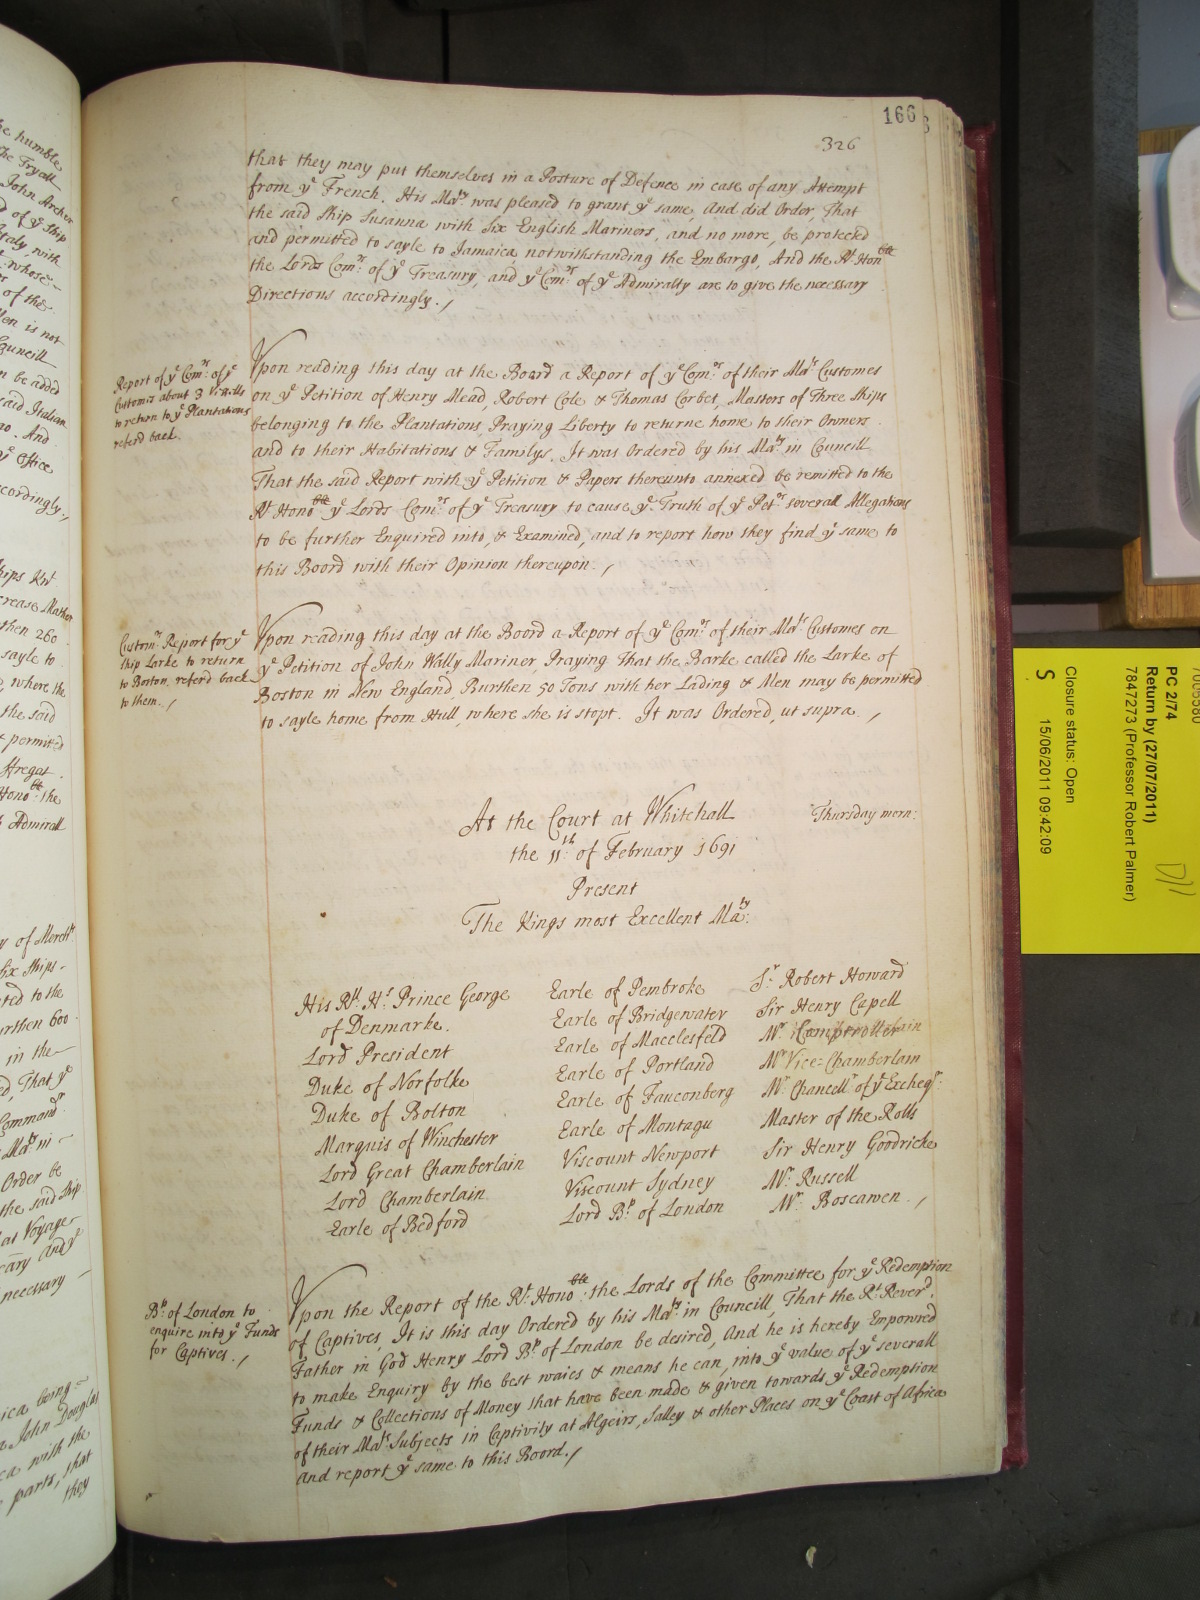 166
326
that they may put themselves in a Posture of Defence in case of any Attempt
from yᵉ French. His Maᵗʸ was pleased to grant yᵉ same, And did Order, That
the said Ship Susanna with Six English Mariners, and no more, be protected
and permitted to sayle to Jamaica notwithstanding the Embargo, And the Rᵗ Honᵇˡᵉ
the Lords Comʳˢ of yᵉ Treasury, and yᵉ Comʳˢ of yᵉ Admiralty are to give the necessary
Directions accordingly. /
Report of yᵉ Comʳˢ of yᵉ
Customes about 3 Vessells
to return to yᵉ Plantations
referd back.
Vpon reading this day at the Board a Report of yᵉ Comʳˢ of their Maᵗˢ Customes
on yᵉ Petition of Henry Mead, Robert Cole & Thomas Corbet, Masters of Three Ships
belonging to the Plantations, Praying Liberty to returne home to their Owners
and to their Habitations & Familys, It was Ordered by his Maᵗʸ in Councill
That the said Report with yᵉ Petition & Papers thereunto annexed be remitted to the
Rᵗ Honoᵇˡᵉ yᵉ Lords Comʳˢ of yᵉ Treasury to cause yᵉ Truth of yᵉ Petʳˢ severall Allegations
to be further Enquired into, & Examined, and to report how they find yᵉ same to
this Board with their Opinion thereupon. /
Customʳˢ Report for yᵉ
Ship Larke to return
to Boston, referd back
to them. /
Vpon reading this day at the Board a Report of yᵉ Comʳˢ of their Maᵗˢ Customes on
yᵉ Petition of John Willy Mariner, Praying That the Barke called the Larke of
Boston in New England, Burthen 50 Tons with her Lading & Men may be permitted
to sayle home from Hull, where she is stopt. It was Ordered, ut supra. /
At the Court at Whitehall
Thursday morn:
the 11ᵗʰ of February 1691
Present
The Kings most Excellent Maᵗʸ
His Rˡˡ Hˢ Prince George
of Denmarke.
Lord President
Duke of Norfolke
Duke of Bolton
Marquis of Winchester
Lord Great Chamberlain
Lord Chamberlain
Earle of Bedford
Earle of Pembroke
Earle of Bridgewater
Earle of Macclesfeld
Earle of Portland
Earle of Fauconberg
Earle of Montagu
Viscount Newport
Viscount Sydney
Lord Bᵖ of London
Sʳ Robert Howard
Sir Henry Capell
Mʳ Comptroller
Mʳ Vice=Chamberlain
Mʳ Chancellʳ of yᵉ Excheqʳ:
Master of the Rolls
Sir Henry Goodricke
Mʳ Russell
Mʳ Boscawen. /
Bᵖ of London to
enquire into yᵉ Funds
for Captives. /
Vpon the Report of the Rᵗ Honoᵇˡᵉ: the Lords of the Committee for yᵉ Redemption
of Captives, It is this day Ordered by his Maᵗʸ in Councill, That the Rᵗ Reverᵈ.
Father in God Henry Lord Bᵖ of London be desired, And he is hereby Empowred
to make Enquiry by the best waies & means he can, into yᵉ value of yᵉ severall
Funds & Collections of Money that have been made & given towards yᵉ Redemption
of their Maᵗˢ Subjects in Captivity at Algeirs, Salley & other Places on yᵉ Coast of Africa
And report yᵉ same to this Board. /
PC 2/74
Return by (27/07/2011)
7847273 (Professor Robert Palmer)
Closure status: Open
S 15/06/2011 09:42:09